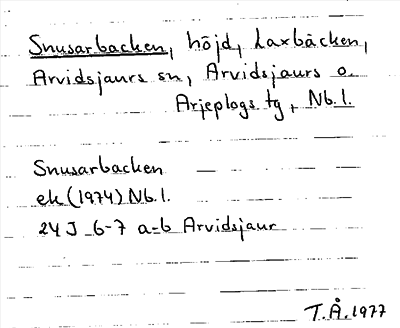 Snusarbacken, höjd, Laxbäcken,
Arvidsjaurs sn, Arvidsjaurs o.
Arjeplogs tg, Nb.l.
Snusarbacken
ek (1974) Nb.l.
24 J 6-7 a-b Arvidsjaur
T.Å. 1977